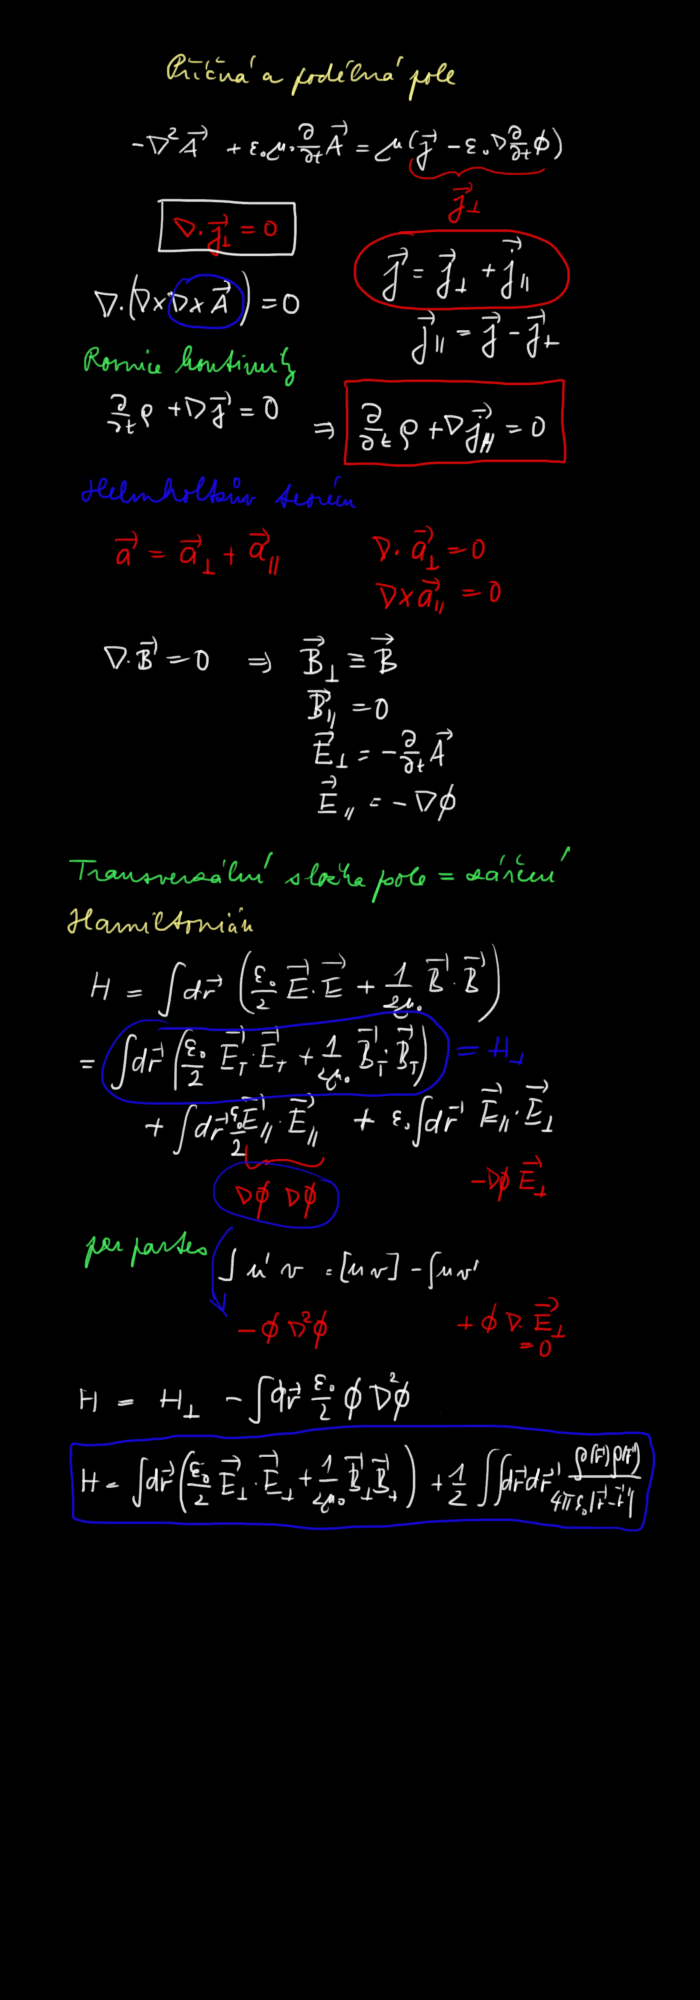 Příčná a podélná pole
-∇² A⃗ + ε₀μ₀ ∂/∂t A⃗ = μ(j⃗ - ε₀∇ ∂/∂t ϕ)
j⃗⊥
∇·j⃗⊥ = 0
j⃗ = j⃗⊥ + j⃗∥
∇·(∇×∇×A⃗) = 0
j⃗∥ = j⃗ - j⃗⊥
Rovnice kontinuity
∂/∂t ρ + ∇j⃗ = 0 ⇒ ∂/∂t ρ + ∇j⃗∥ = 0
Helmholtzův teorém
a⃗ = a⃗⊥ + a⃗∥ ∇·a⃗⊥ = 0
∇×a⃗∥ = 0
∇·B⃗ = 0 ⇒ B⃗⊥ ≡ B⃗
B⃗∥ = 0
E⃗⊥ = -∂/∂t A⃗
E⃗∥ = -∇ϕ
Transverzální složka pole = záření
Hamiltonián
H = ∫dr⃗ (ε₀/2 E⃗·E⃗ + 1/2μ₀ B⃗·B⃗)
= ∫dr⃗ (ε₀/2 E⃗T·E⃗T + 1/2μ₀ B⃗T·B⃗T) = H⊥
+ ∫dr⃗ ε₀/2 E⃗∥·E⃗∥ + ε₀∫dr⃗ E⃗∥·E⃗⊥
∇ϕ ∇ϕ -∇ϕ E⃗⊥
per partes ∫u'v = [uv] - ∫uv'
-ϕ∇²ϕ +ϕ∇·E⃗⊥
= 0
H = H⊥ - ∫dr⃗ ε₀/2 ϕ∇²ϕ
H = ∫dr⃗ (ε₀/2 E⃗⊥·E⃗⊥ + 1/2μ₀ B⃗⊥B⃗⊥) + 1/2 ∫∫dr⃗dr⃗' ρ(r⃗)ρ(r⃗')/4πε₀|r⃗-r⃗'|